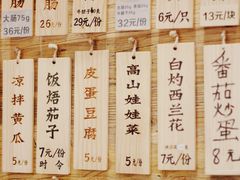 肠
大肠75g
36元/份
肠
26元
29元/份
32元/份
6元/只
13元/块
凉拌黄瓜
5元/份
饭焐茄子
7元/份
时令
皮蛋豆腐
5元/份
高山娃娃菜
5元/份
白灼西兰花
7元/份
番茄炒蛋
8元